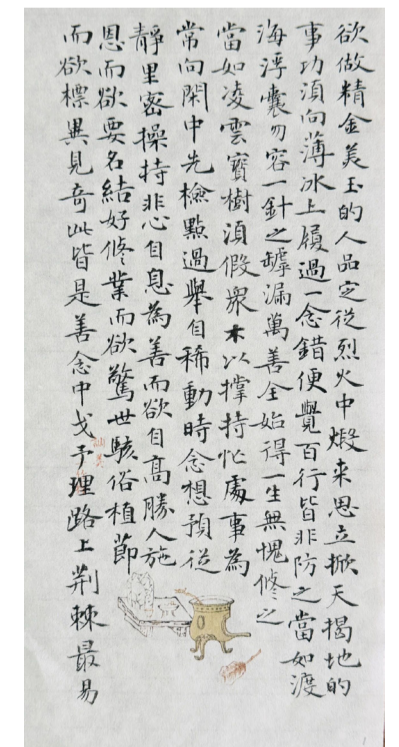 欲做精金美玉的人品定從烈火中煆来思立掀天揭地的
事功須向薄冰上履過一念錯便覺百行皆非防之當如渡
海浮囊勿容一針之罅漏萬善全始得一生無愧修之
當如凌雲寶樹須假衆木以撑持忙處事為
常向閑中先檢點過舉自稀動時念想預從
靜里密操持非心自息為善而欲自高勝人施
恩而欲要名結好修業而欲驚世駭俗植節
而欲標異見奇此皆是善念中戈予理路上荆棘最易